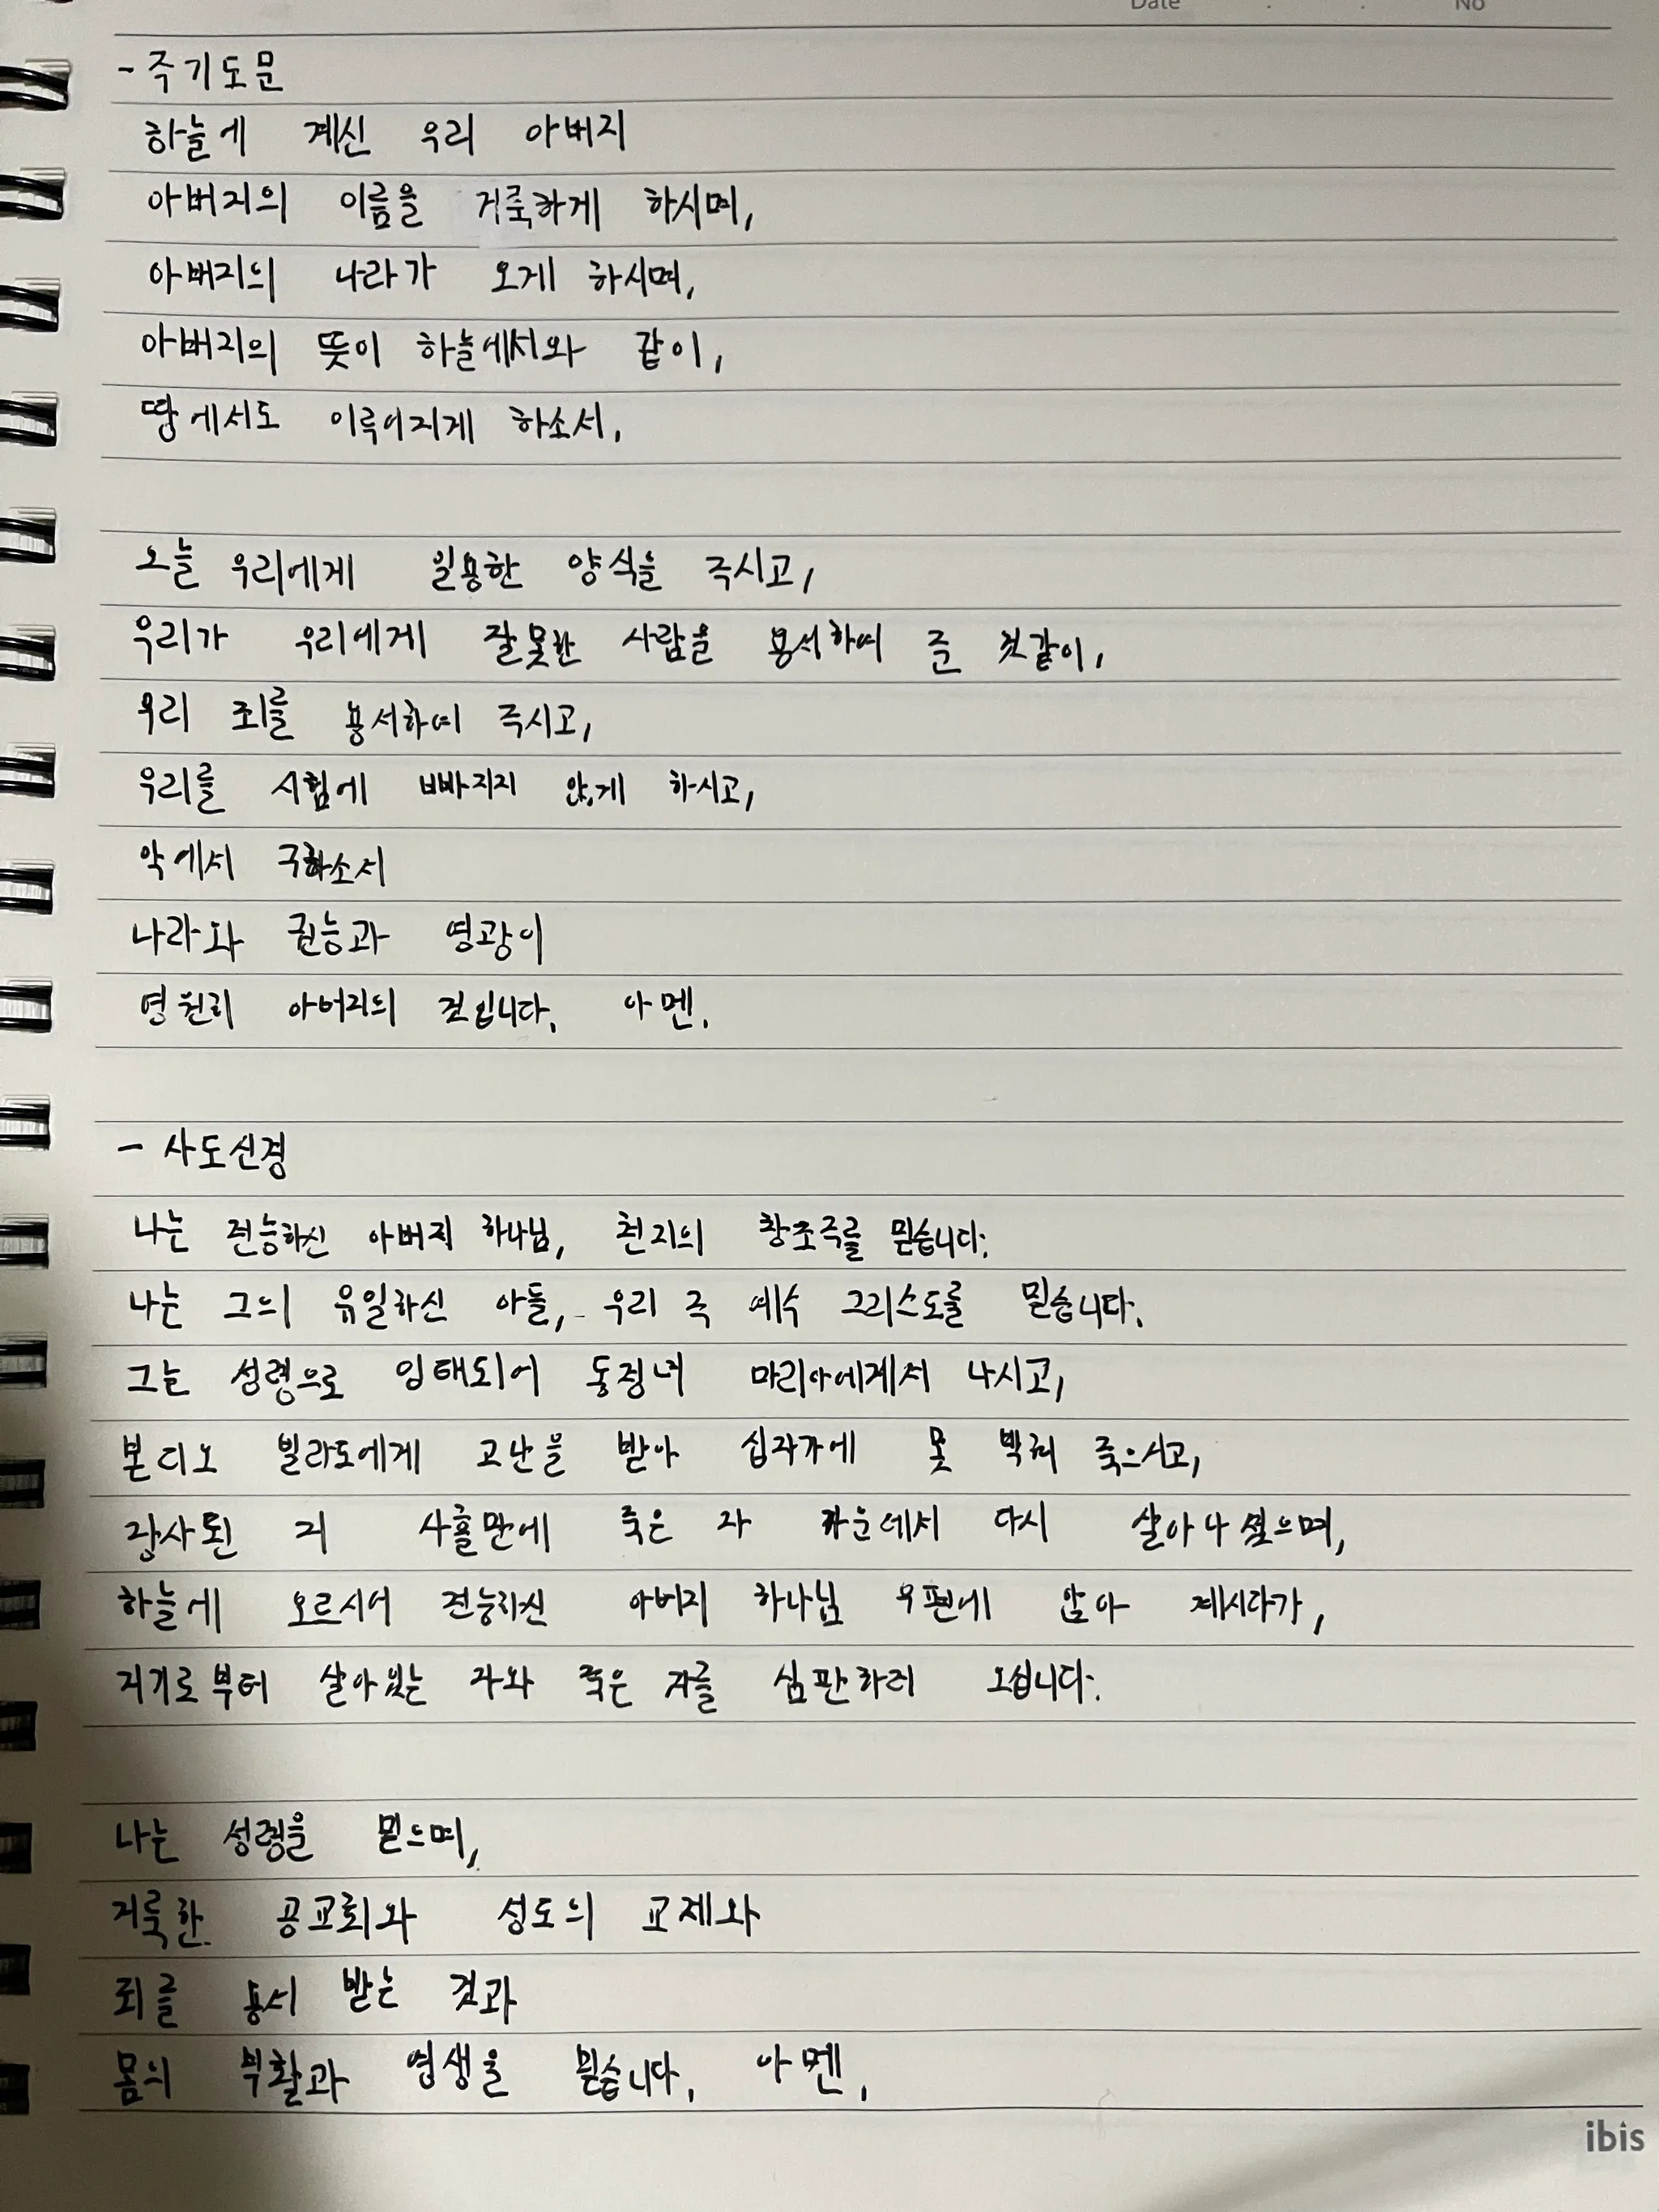 Date . . No
- 주기도문
하늘에 계신 우리 아버지
아버지의 이름을 거룩하게 하시며,
아버지의 나라가 오게 하시며,
아버지의 뜻이 하늘에서와 같이,
땅에서도 이루어지게 하소서,
오늘 우리에게 일용한 양식을 주시고,
우리가 우리에게 잘못한 사람을 용서하여 준 것같이,
우리 죄를 용서하여 주시고,
우리를 시험에 빠지지 않게 하시고,
악에서 구하소서
나라와 권능과 영광이
영원히 아버지의 것입니다. 아멘.
- 사도신경
나는 전능하신 아버지 하나님, 천지의 창조주를 믿습니다.
나는 그의 유일하신 아들, 우리 주 예수 그리스도를 믿습니다.
그는 성령으로 잉태되어 동정녀 마리아에게서 나시고,
본디오 빌라도에게 고난을 받아 십자가에 못 박혀 죽으시고,
장사된 지 사흘만에 죽은 자 가운데서 다시 살아나셨으며,
하늘에 오르시어 전능하신 아버지 하나님 우편에 앉아 계시다가,
거기로부터 살아있는 자와 죽은 자를 심판하러 오십니다.
나는 성령을 믿으며,
거룩한 공교회와 성도의 교제와
죄를 용서 받는 것과
몸의 부활과 영생을 믿습니다. 아멘.
ibis